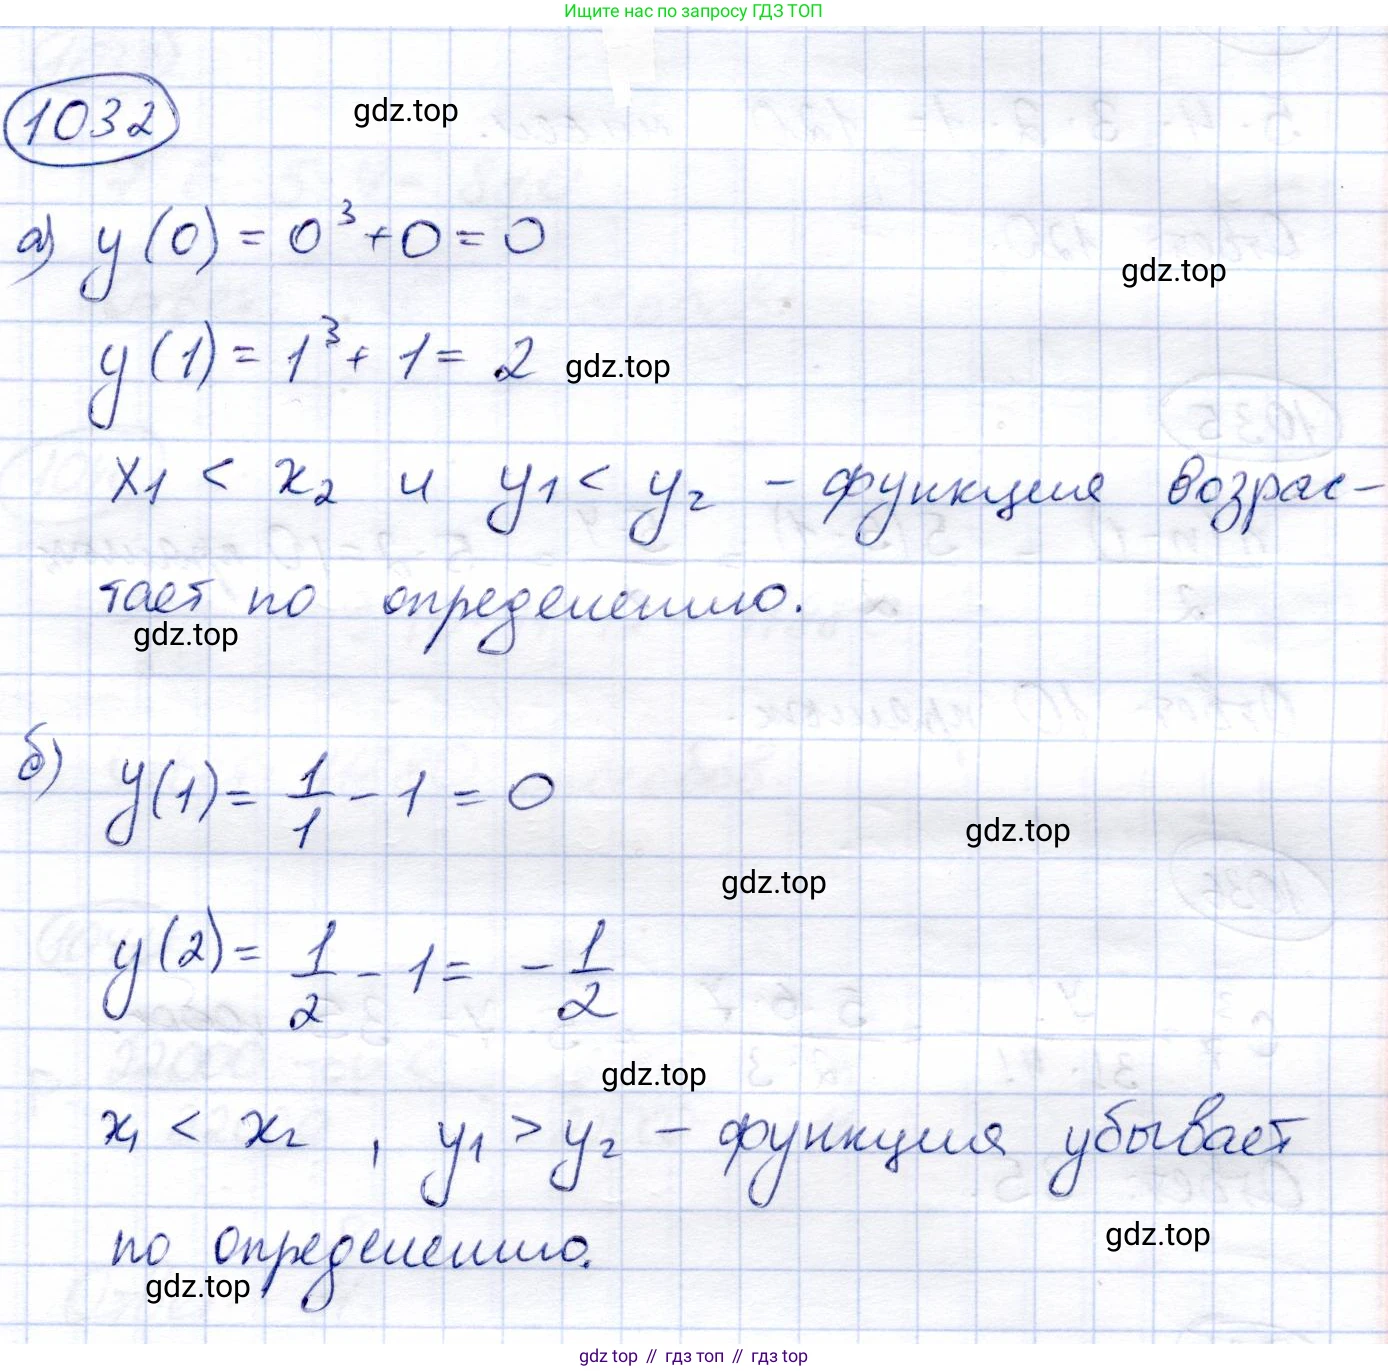 Ищите нас по запросу ГДЗ ТОП
1032
gdz.top
а) y(0) = 0³ + 0 = 0
gdz.top
y(1) = 1³ + 1 = 2
gdz.top
x₁ < x₂ и y₁ < y₂ - функция возрас-
тает по определению.
gdz.top
б) y(1) = 1/1 - 1 = 0
gdz.top
gdz.top
y(2) = 1/2 - 1 = -1/2
gdz.top
x₁ < x₂, y₁ > y₂ - функция убывает
по определению.
gdz.top
gdz.top
gdz top // гдз топ // гдз top